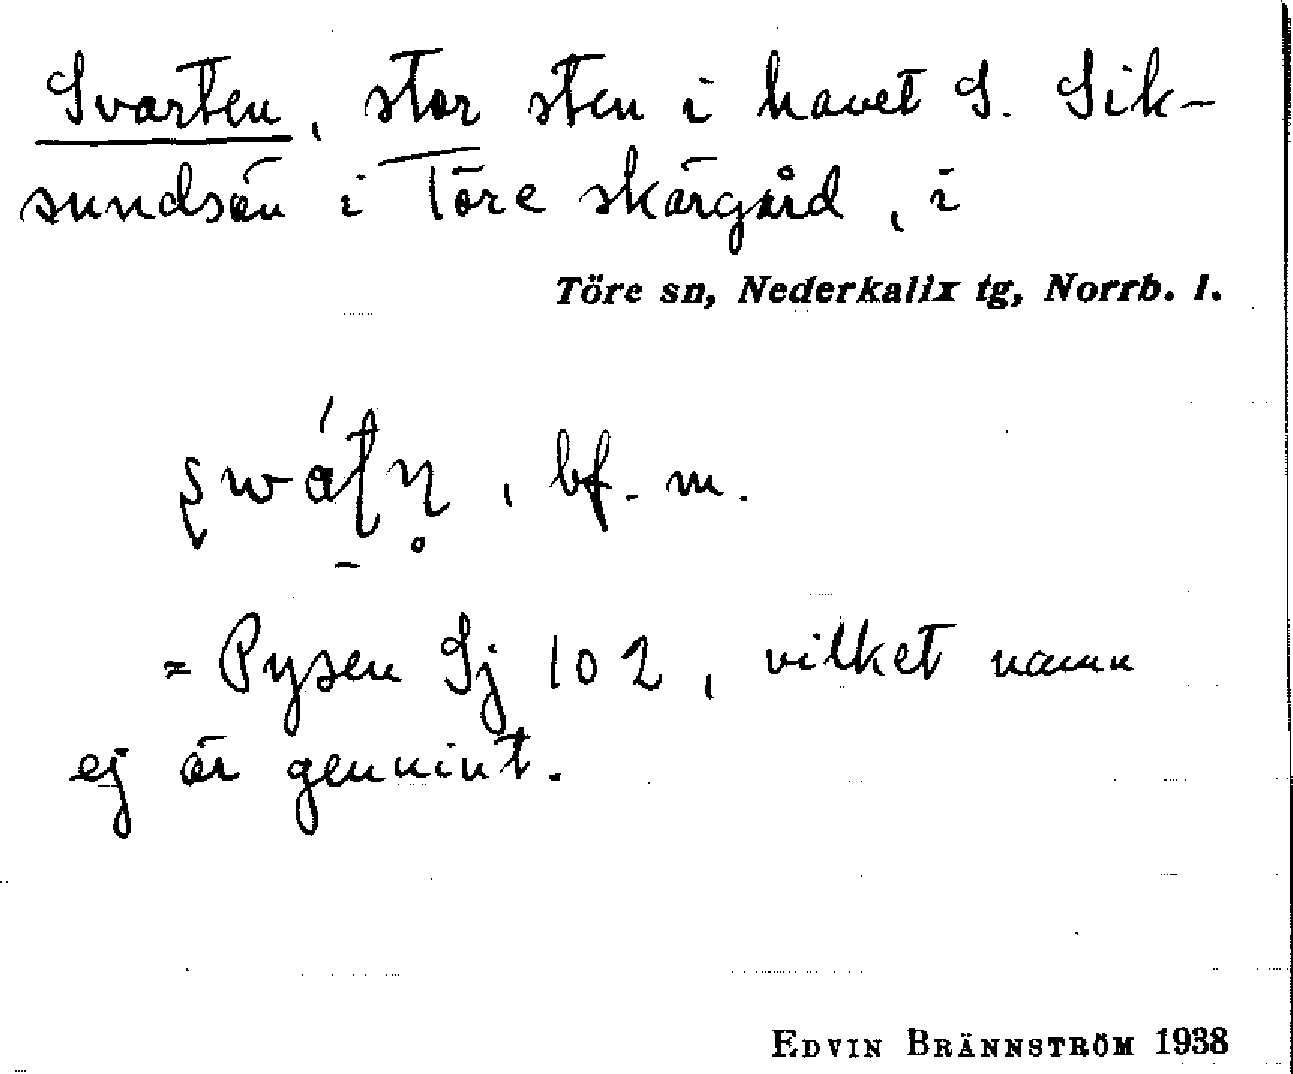 Svarten, stor sten i havet S. Sik-
sundsön i Töre skärgård, i
Töre sn, Nederkalix tg, Norrb. l.
bf. m.
= Pysen Sj 102, vilket namn
ej är genuint.
EDVIN BRÄNNSTRÖM 1938